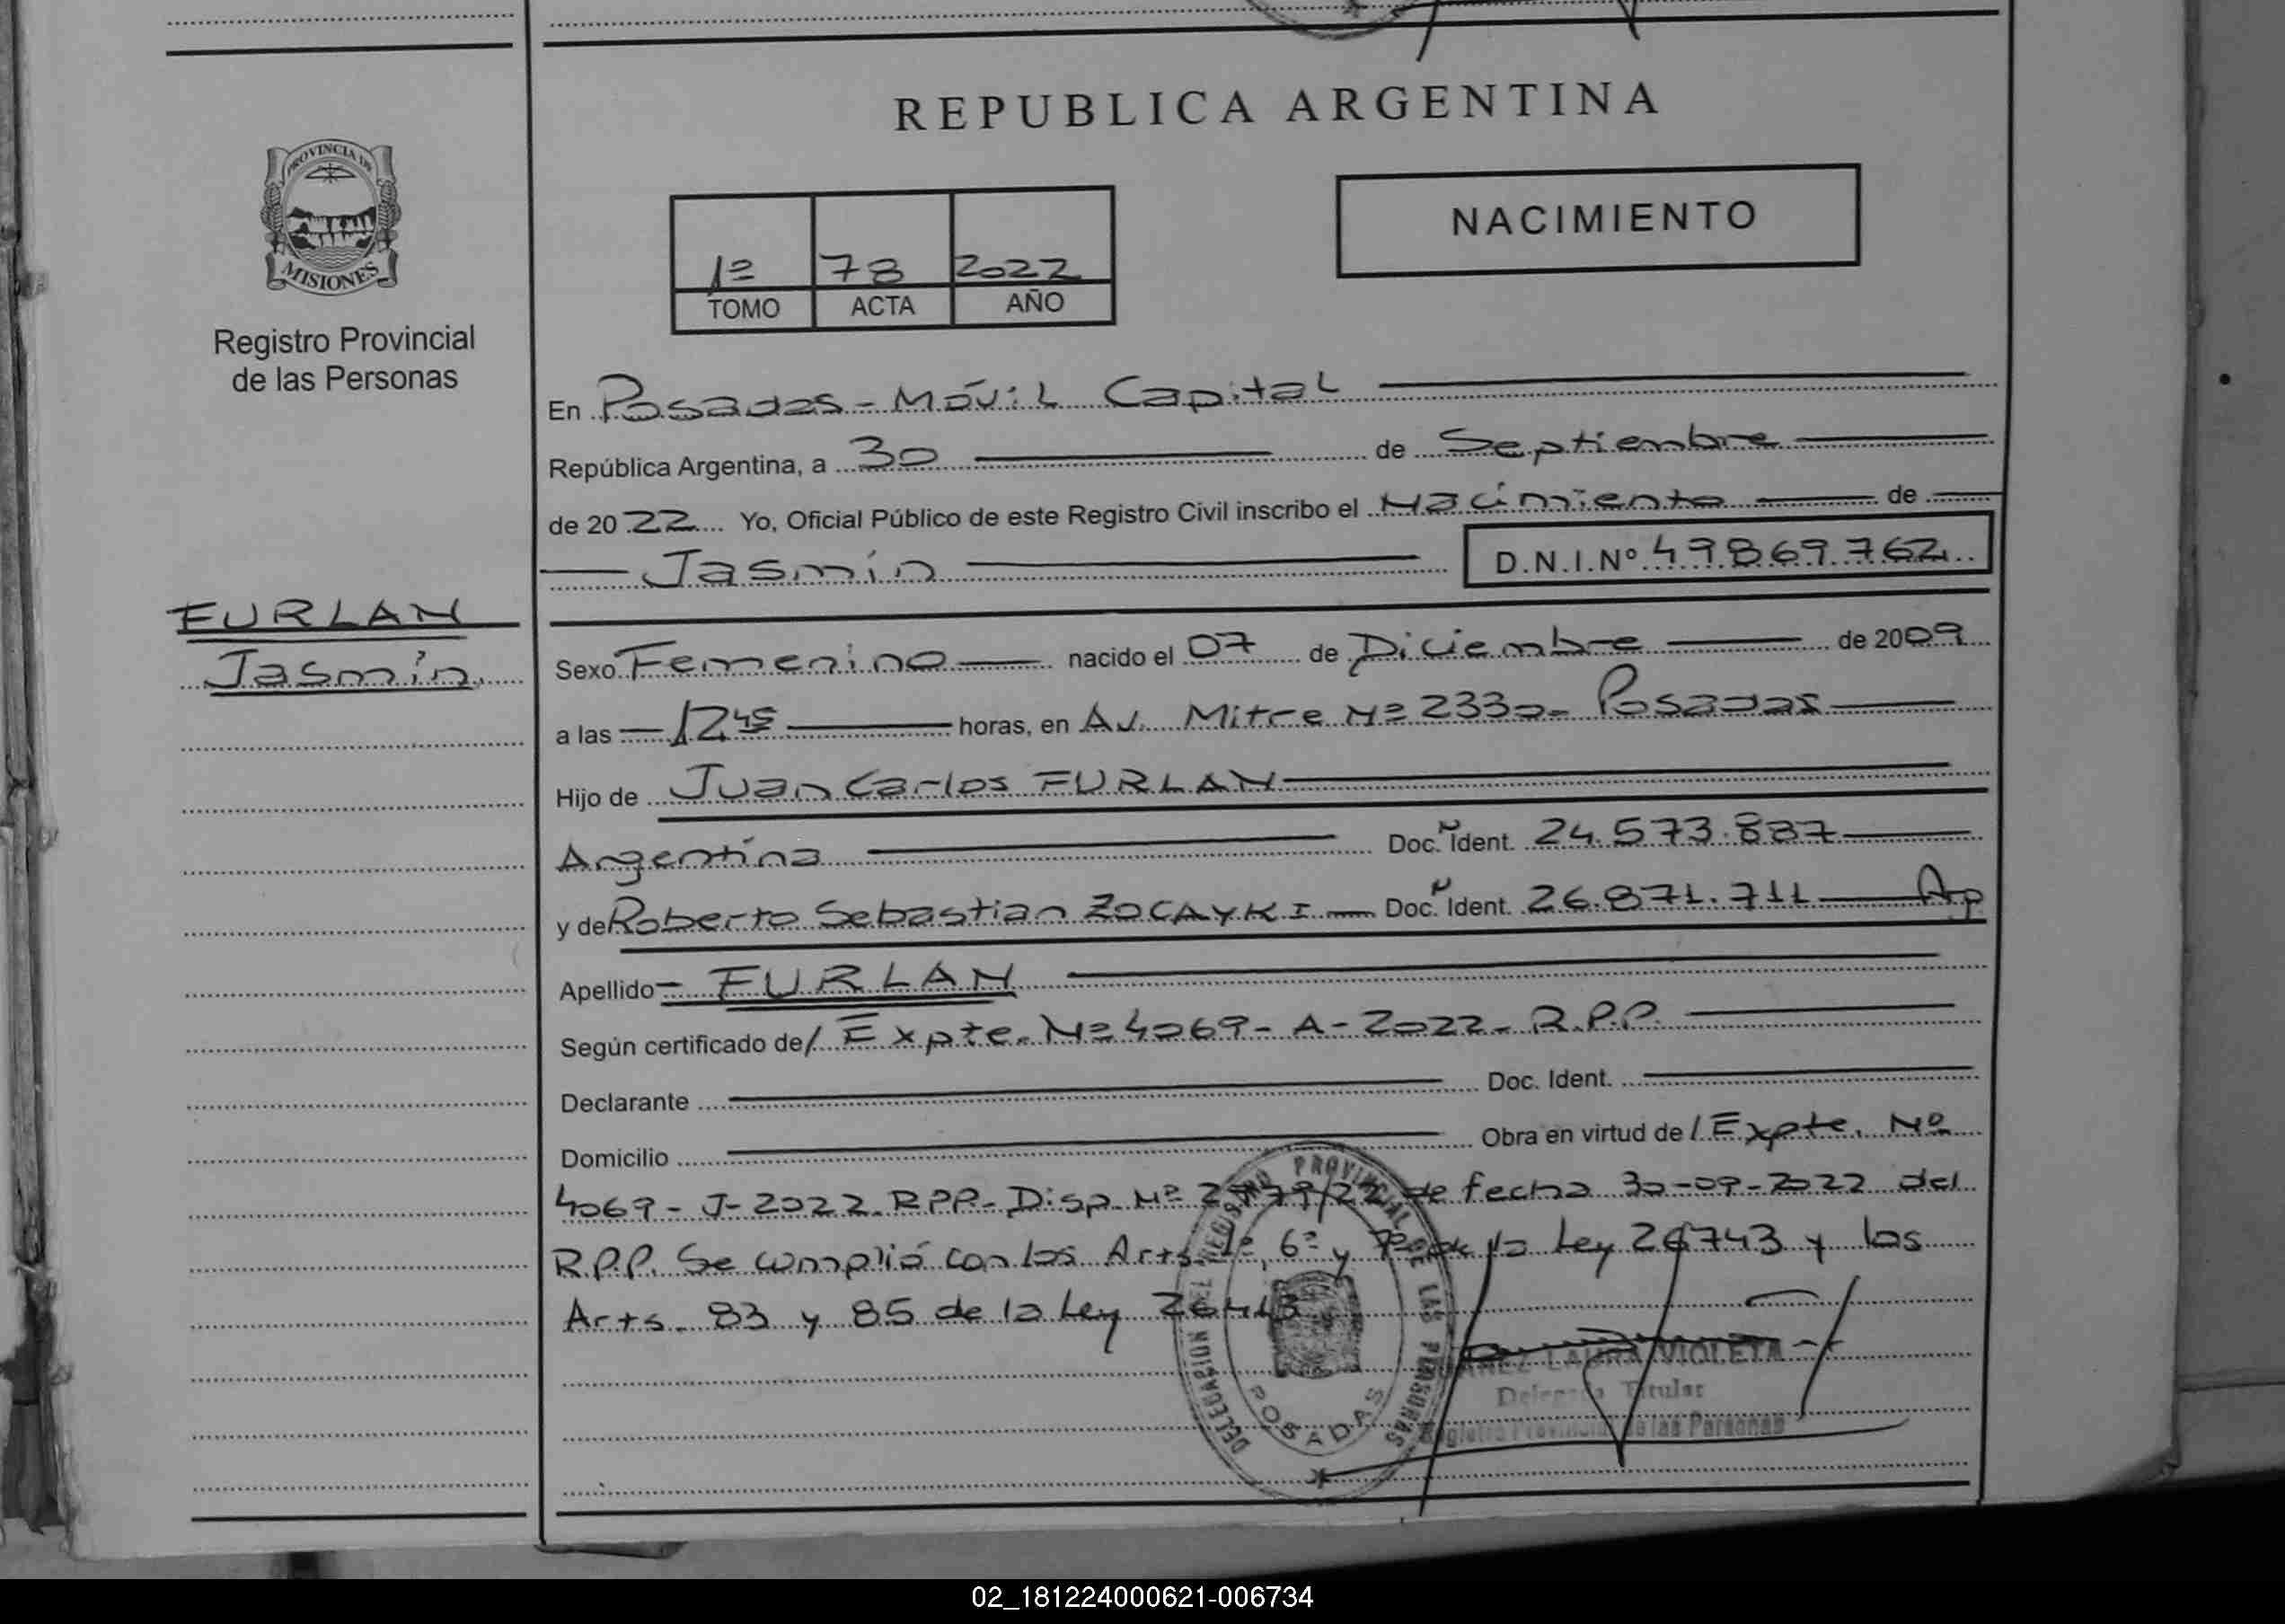 REPUBLICA ARGENTINA
PROVINCIA DE
MISIONES
Registro Provincial
de las Personas
NACIMIENTO
1º 78 2022
TOMO ACTA AÑO
En Posadas - Móvil Capital
República Argentina, a 30 de Septiembre
de 2022 Yo, Oficial Público de este Registro Civil inscribo el Nacimiento de
Jasmín D.N.I.Nº 49.869.762
FURLAN
Jasmín
Sexo Femenino nacido el 07 de Diciembre de 2009
a las 12 45 horas, en Av. Mitre Nº 2330 - Posadas
Hijo de Juan Carlos FURLAN
Argentina Doc. Ident. 24.573.887
y de Roberto Sebastian ZOCAYKI Doc. Ident. 26.871.711 Ap
Apellido FURLAN
Según certificado de/ Expte. Nº 4069 - A - 2022 - R.P.P.
Declarante Doc. Ident.
Domicilio Obra en virtud de/ Expte. Nº
4069 - J - 2022 RPP - Disp. Nº /22 de fecha 30-09-2022 del
R.P.P. Se cumplió con los Arts. 6º y 7º de la Ley 26743 y los
Arts. 83 y 85 de la Ley 26413
DELEGACION DEL REGISTRO PROVINCIAL DE LAS PERSONAS
POSADAS
LAURA VIOLETA
Delegada Titular
Registro Provincial de las Personas
02_181224000621-006734